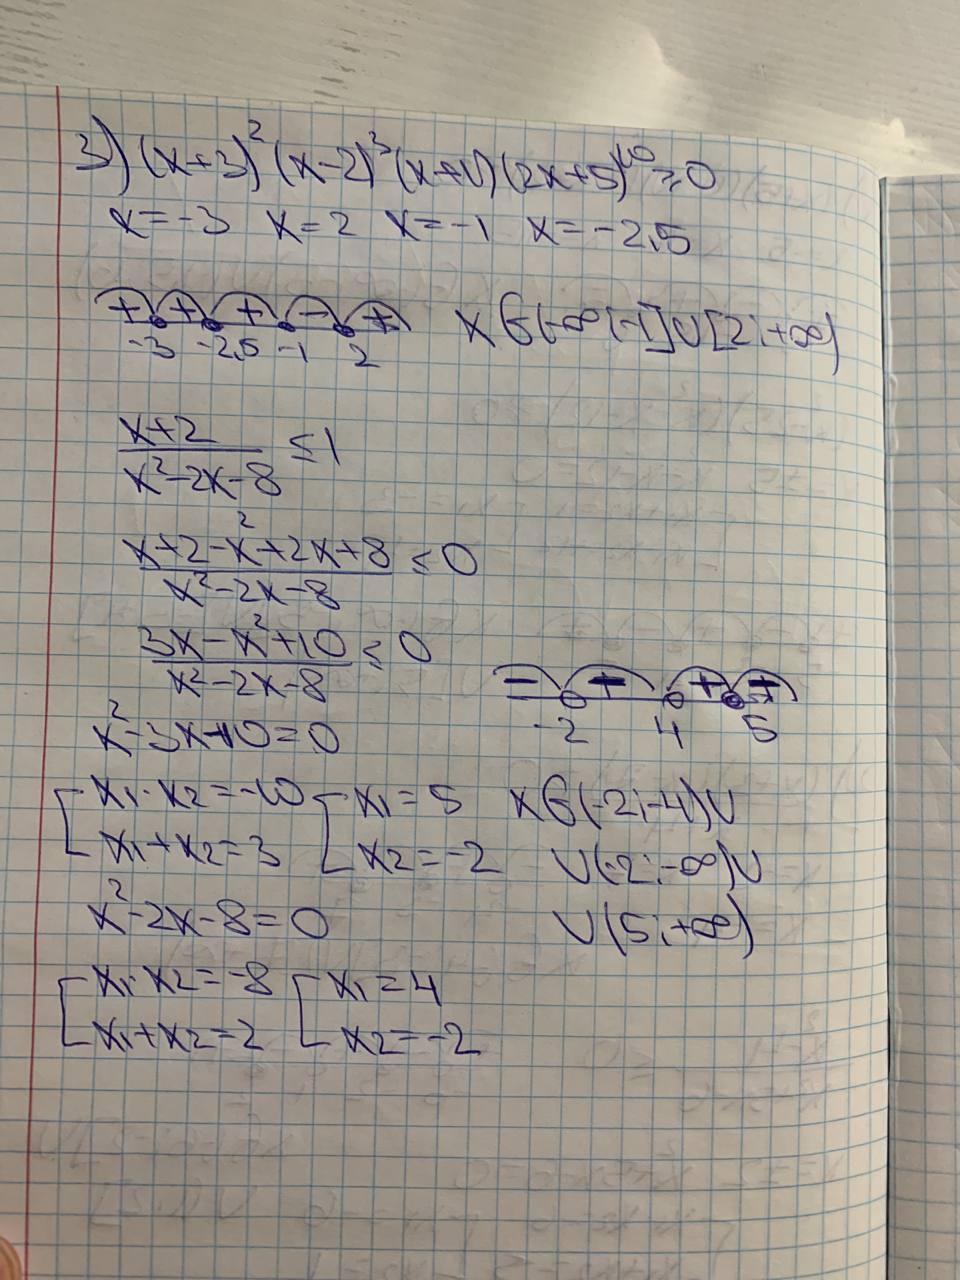 3) (x+3)² (x-2)³ (x+1) (2x+5)¹⁰ ≥ 0
x = -3 x = 2 x = -1 x = -2,5
+ + + - +
-3 -2,5 -1 2
x ∈ (-∞; -1] ∪ [2; +∞)
x+2 / x²-2x-8 ≤ 1
x+2-x²+2x+8 / x²-2x-8 ≤ 0
3x-x²+10 / x²-2x-8 ≤ 0
x²-3x-10 = 0
x₁·x₂ = -10 x₁ = 5
x₁+x₂ = 3 x₂ = -2
x²-2x-8 = 0
x₁·x₂ = -8 x₁ = 4
x₁+x₂ = 2 x₂ = -2
-2 4 5
x ∈ (-2; -4) ∪
∪ (-2; -∞) ∪
∪ (5; +∞)